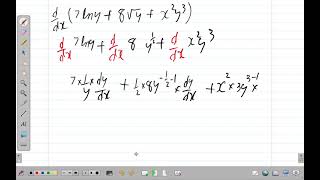 d/dx (7lny + 8√y + x²y³)
d/dx 7lny + d/dx 8 y^½ + d/dx x²y³
7×1/y × dy/dx + ½×8y^(-½-1) × dy/dx + x²×3y^(3-1)×